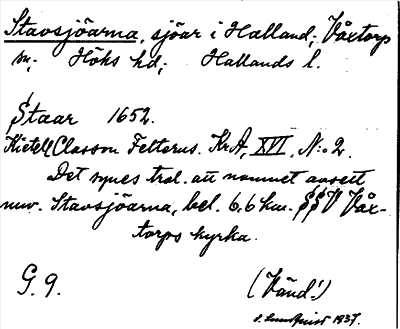 Stavsjöarna, sjöar i Halland; Våxtorp
sn; Höks hd; Hallands l.
Staar 1652.
Kietell Classon Felterus. KrA, XVI, N:o 2.
Det synes trol. att namnet avsett
nuv. Stavsjöarna, bel. 6,6 km. SSV Våx-
torps kyrka.
G. 9.
(Vänd!)
S. Lundquist 1937.